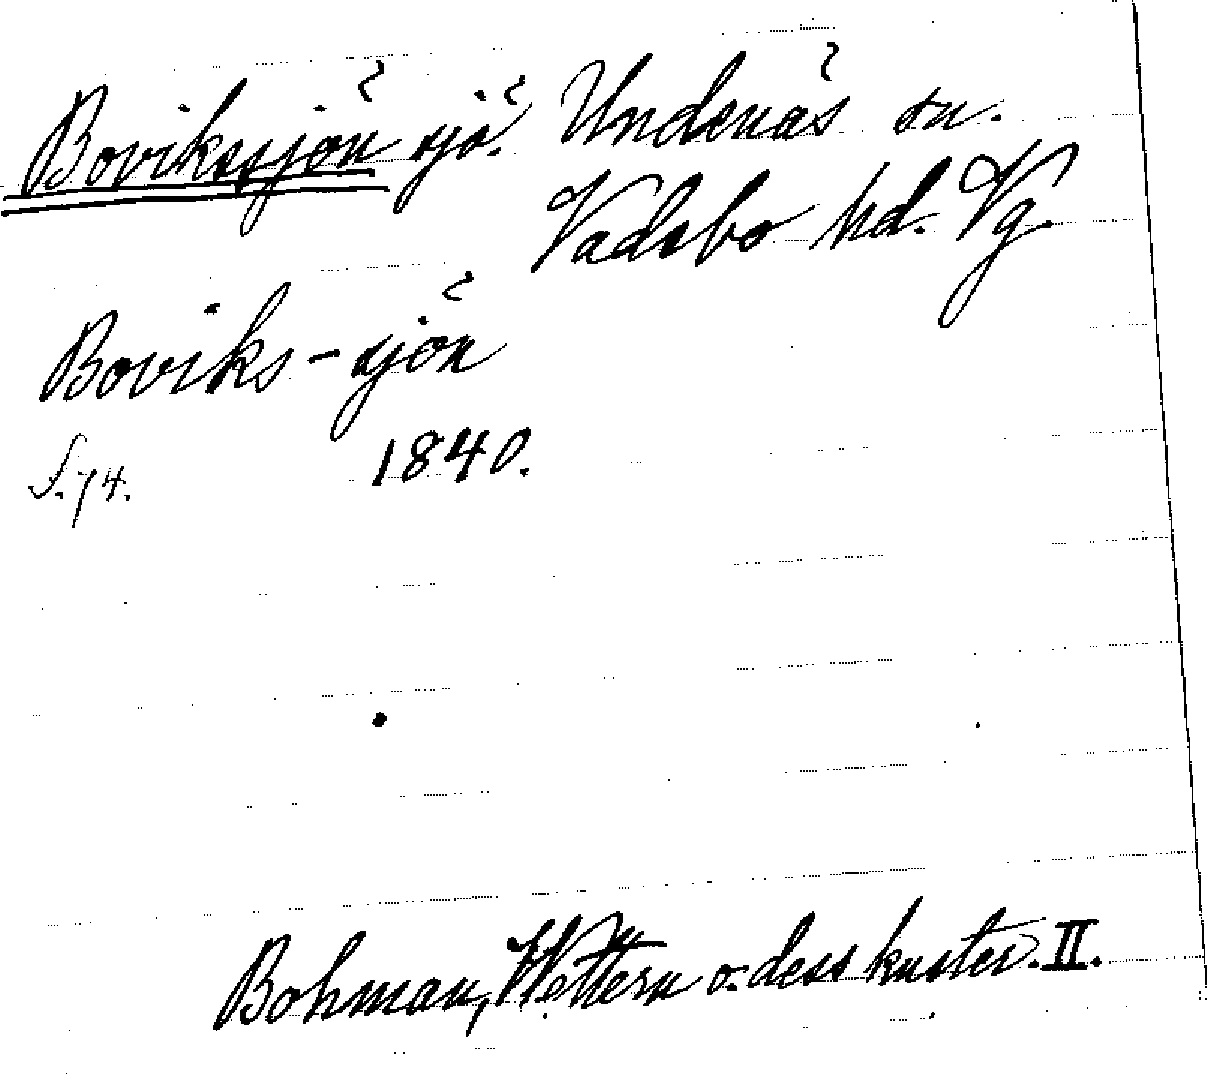 Bovikssjön sjö. Undenäs sn.
Vadsbo hd. Vg.
Boviks-sjön
S. 74. 1840.
Bohman, Wettern o. dess kuster. II.